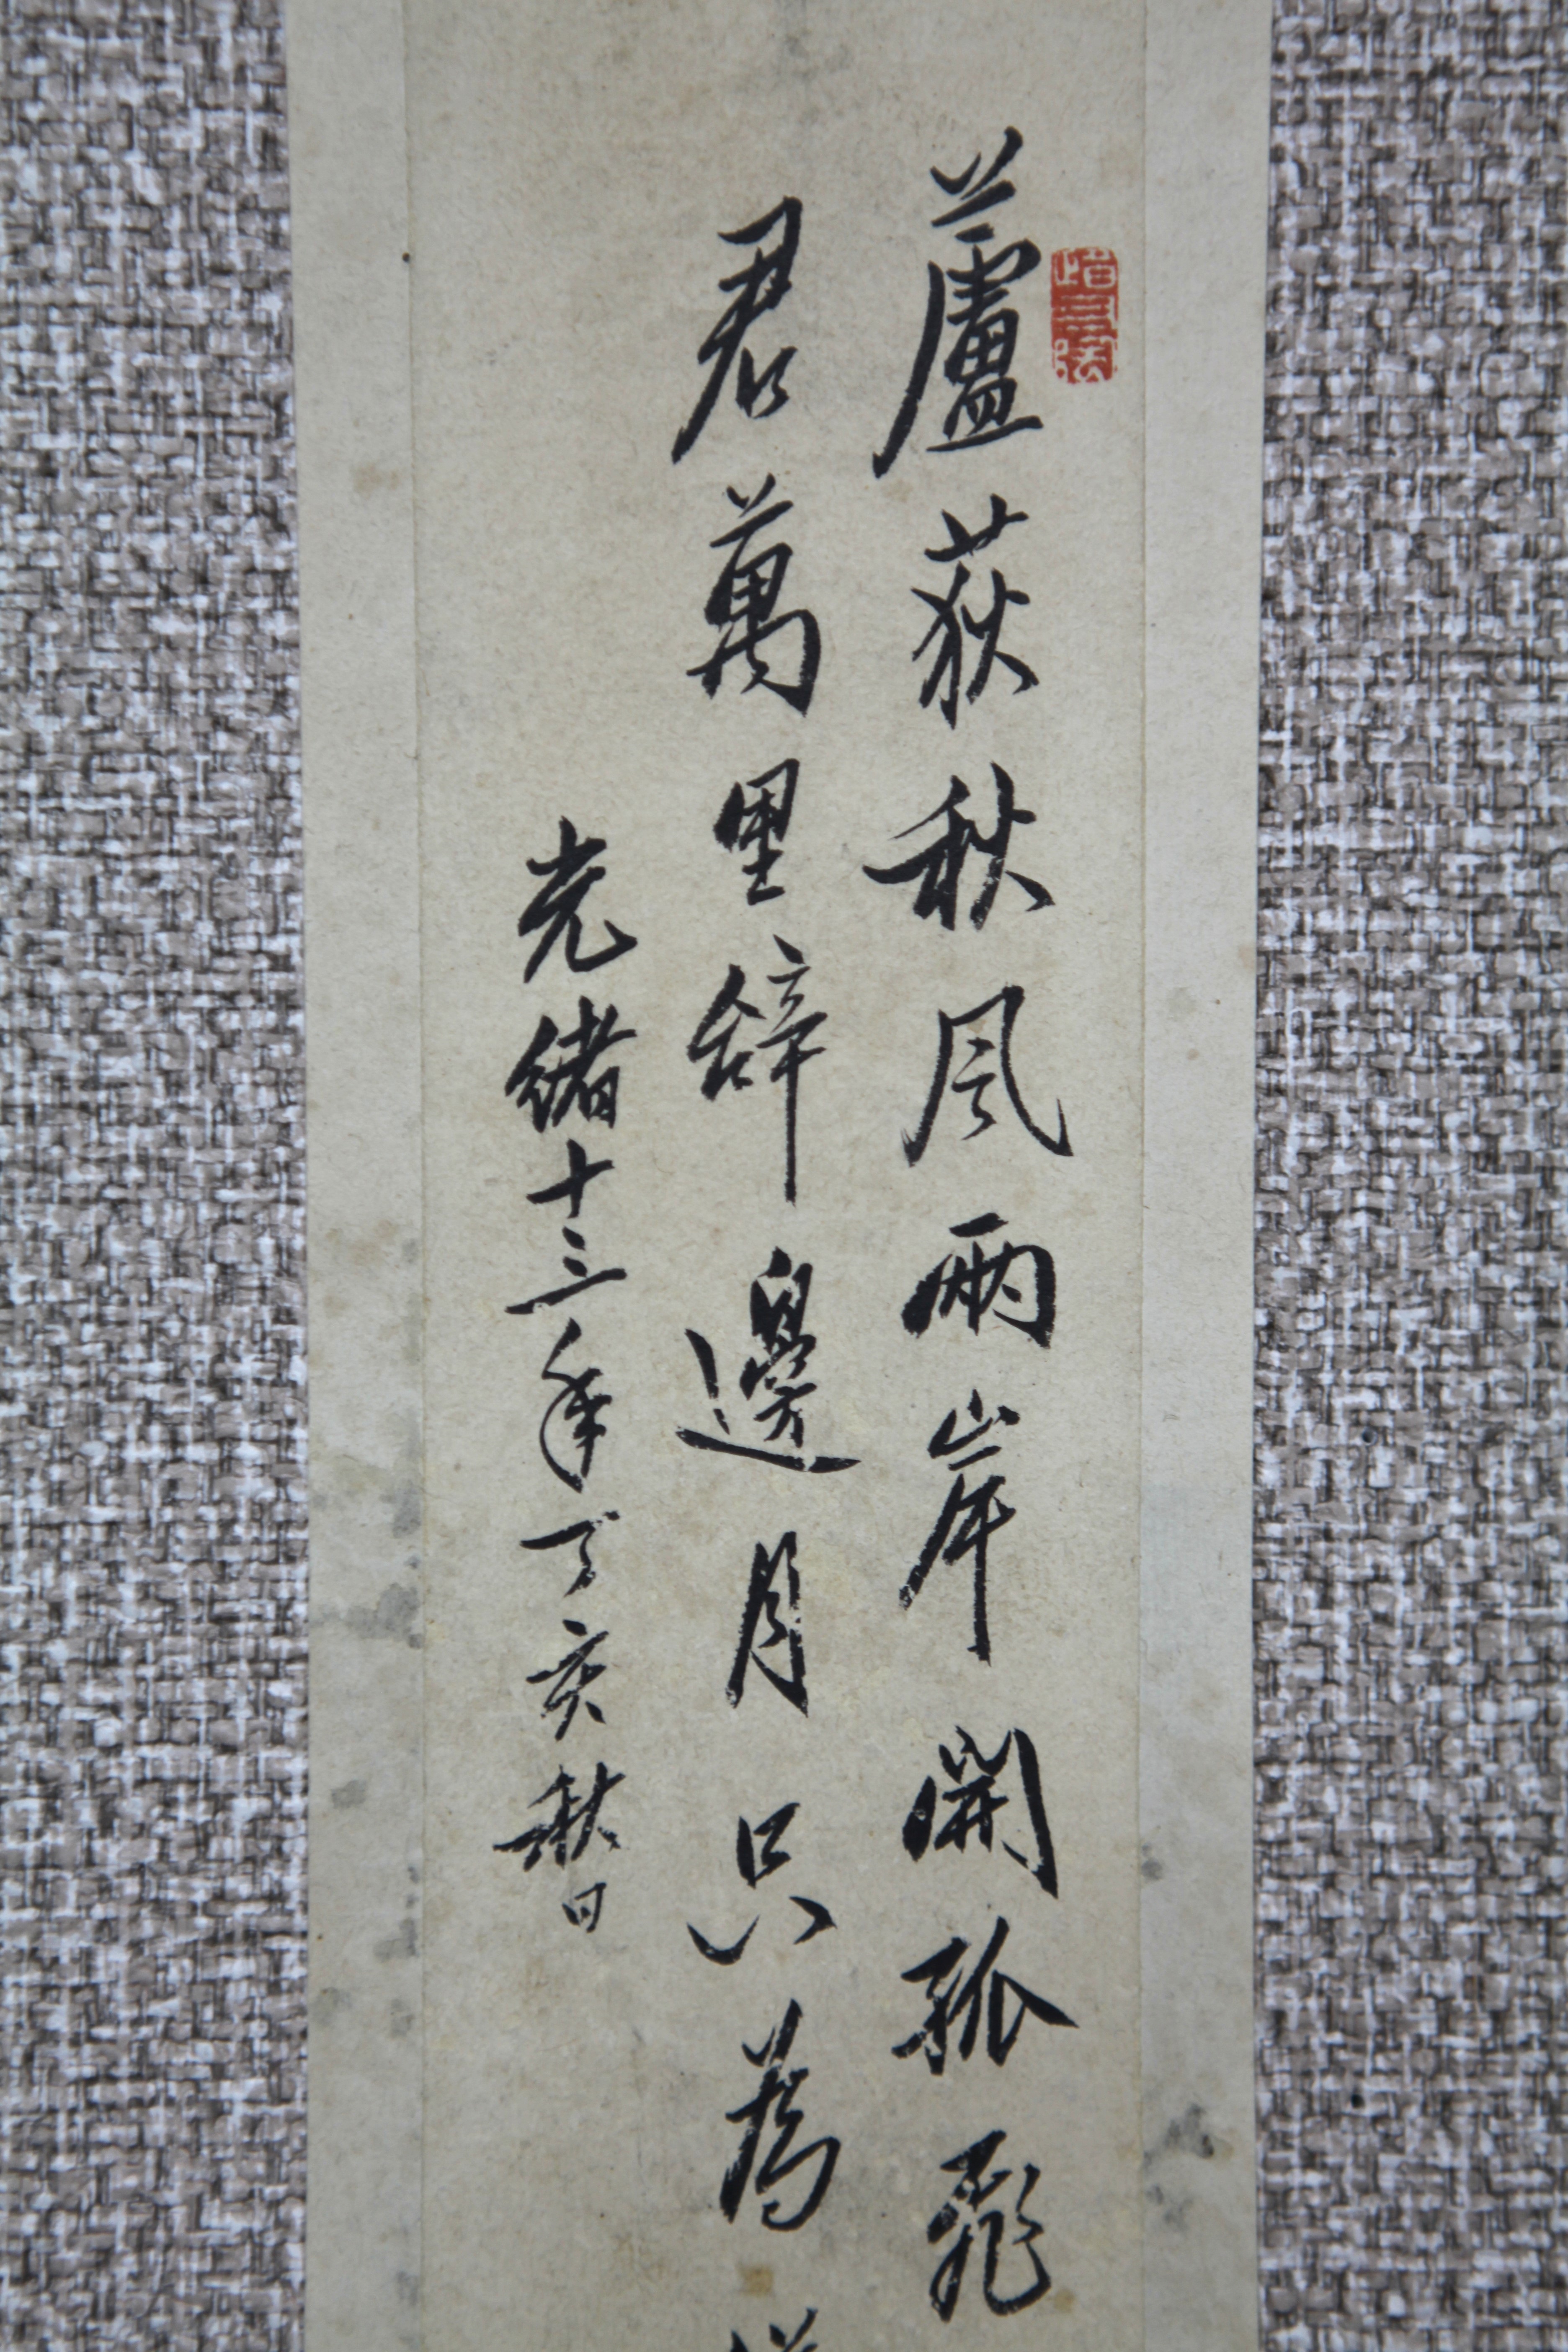 蘆荻秋風兩岸開孤飛
君萬里辭邊月只為
光緒十三年丁亥秋日